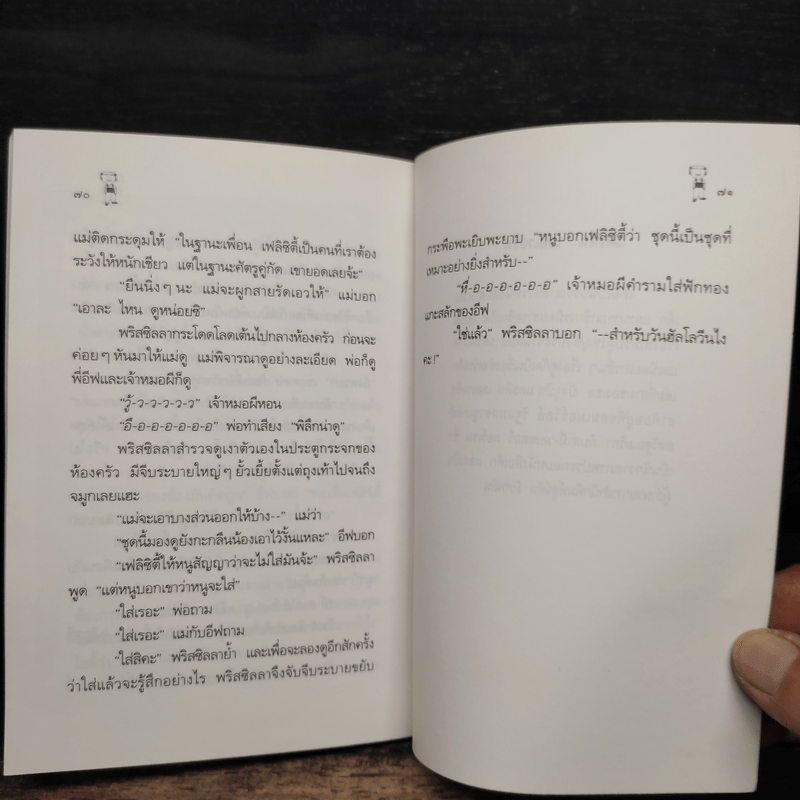 ๗๐
แม่ติดกระดุมให้ “ในฐานะเพื่อน เฟลิซิตี้เป็นคนที่เราต้อง
ระวังให้หนักเชียว แต่ในฐานะศัตรูคู่กัด เขายอดเลยจ้ะ”
“ยืนนิ่งๆ นะ แม่จะผูกสายรัดเอวให้” แม่บอก
“เอาละ ไหน ดูหน่อยซิ”
พริสซิลลากระโดดโลดเต้นไปกลางห้องครัว ก่อนจะ
ค่อยๆ หันมาให้แม่ดู แม่พิจารณาดูอย่างละเอียด พ่อก็ดู
พี่อีฟและเจ้าหมอผีก็ดู
“วู้-ว-ว-ว-ว-ว” เจ้าหมอผีหอน
“อึ-อ-อ-อ-อ-อ-อ” พ่อทำเสียง “พิลึกน่าดู”
พริสซิลลาสำรวจดูเงาตัวเองในประตูกระจกของ
ห้องครัว มีจีบระบายใหญ่ๆ ยั้วเยี้ยตั้งแต่ถุงเท้าไปจนถึง
จมูกเลยแฮะ
“แม่จะเอาบางส่วนออกให้บ้าง--” แม่ว่า
“ชุดนี้มองดูยังกะกลืนน้องเอาไว้งั้นแหละ” อีฟบอก
“เฟลิซิตี้ให้หนูสัญญาว่าจะไม่ใส่มันจ้ะ” พริสซิลลา
พูด “แต่หนูบอกเขาว่าหนูจะใส่”
“ใส่เรอะ” พ่อถาม
“ใส่เรอะ” แม่กับอีฟถาม
“ใส่สิคะ” พริสซิลลาย้ำ และเพื่อจะลองดูอีกสักครั้ง
ว่าใส่แล้วจะรู้สึกอย่างไร พริสซิลลาจึงจับจีบระบายขยับ
๗๑
กระพือพะเยิบพะยาบ “หนูบอกเฟลิซิตี้ว่า ชุดนี้เป็นชุดที่
เหมาะอย่างยิ่งสำหรับ--”
“ที่-อ-อ-อ-อ-อ-อ” เจ้าหมอผีคำรามใส่ฟักทอง
แกะสลักของอีฟ
“ใช่แล้ว” พริสซิลลาบอก “--สำหรับวันฮัลโลวีนไง
คะ!”